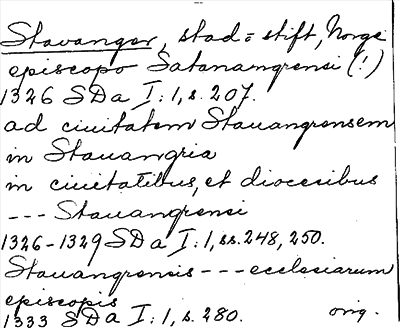 Stavanger, stad = stift, Norge
episcopo Satanangrensi (!)
1326 SDa I:1, s. 207.
ad ciuitatem Stauangrensem
in Stauangria
in ciuitatibus, et diocesibus
--- Stauangrensi
1326-1329 SDa I:1, ss. 248, 250.
Stauangrensis --- ecclesiarum
episcopis
1333 SDa I:1, s. 280. orig.